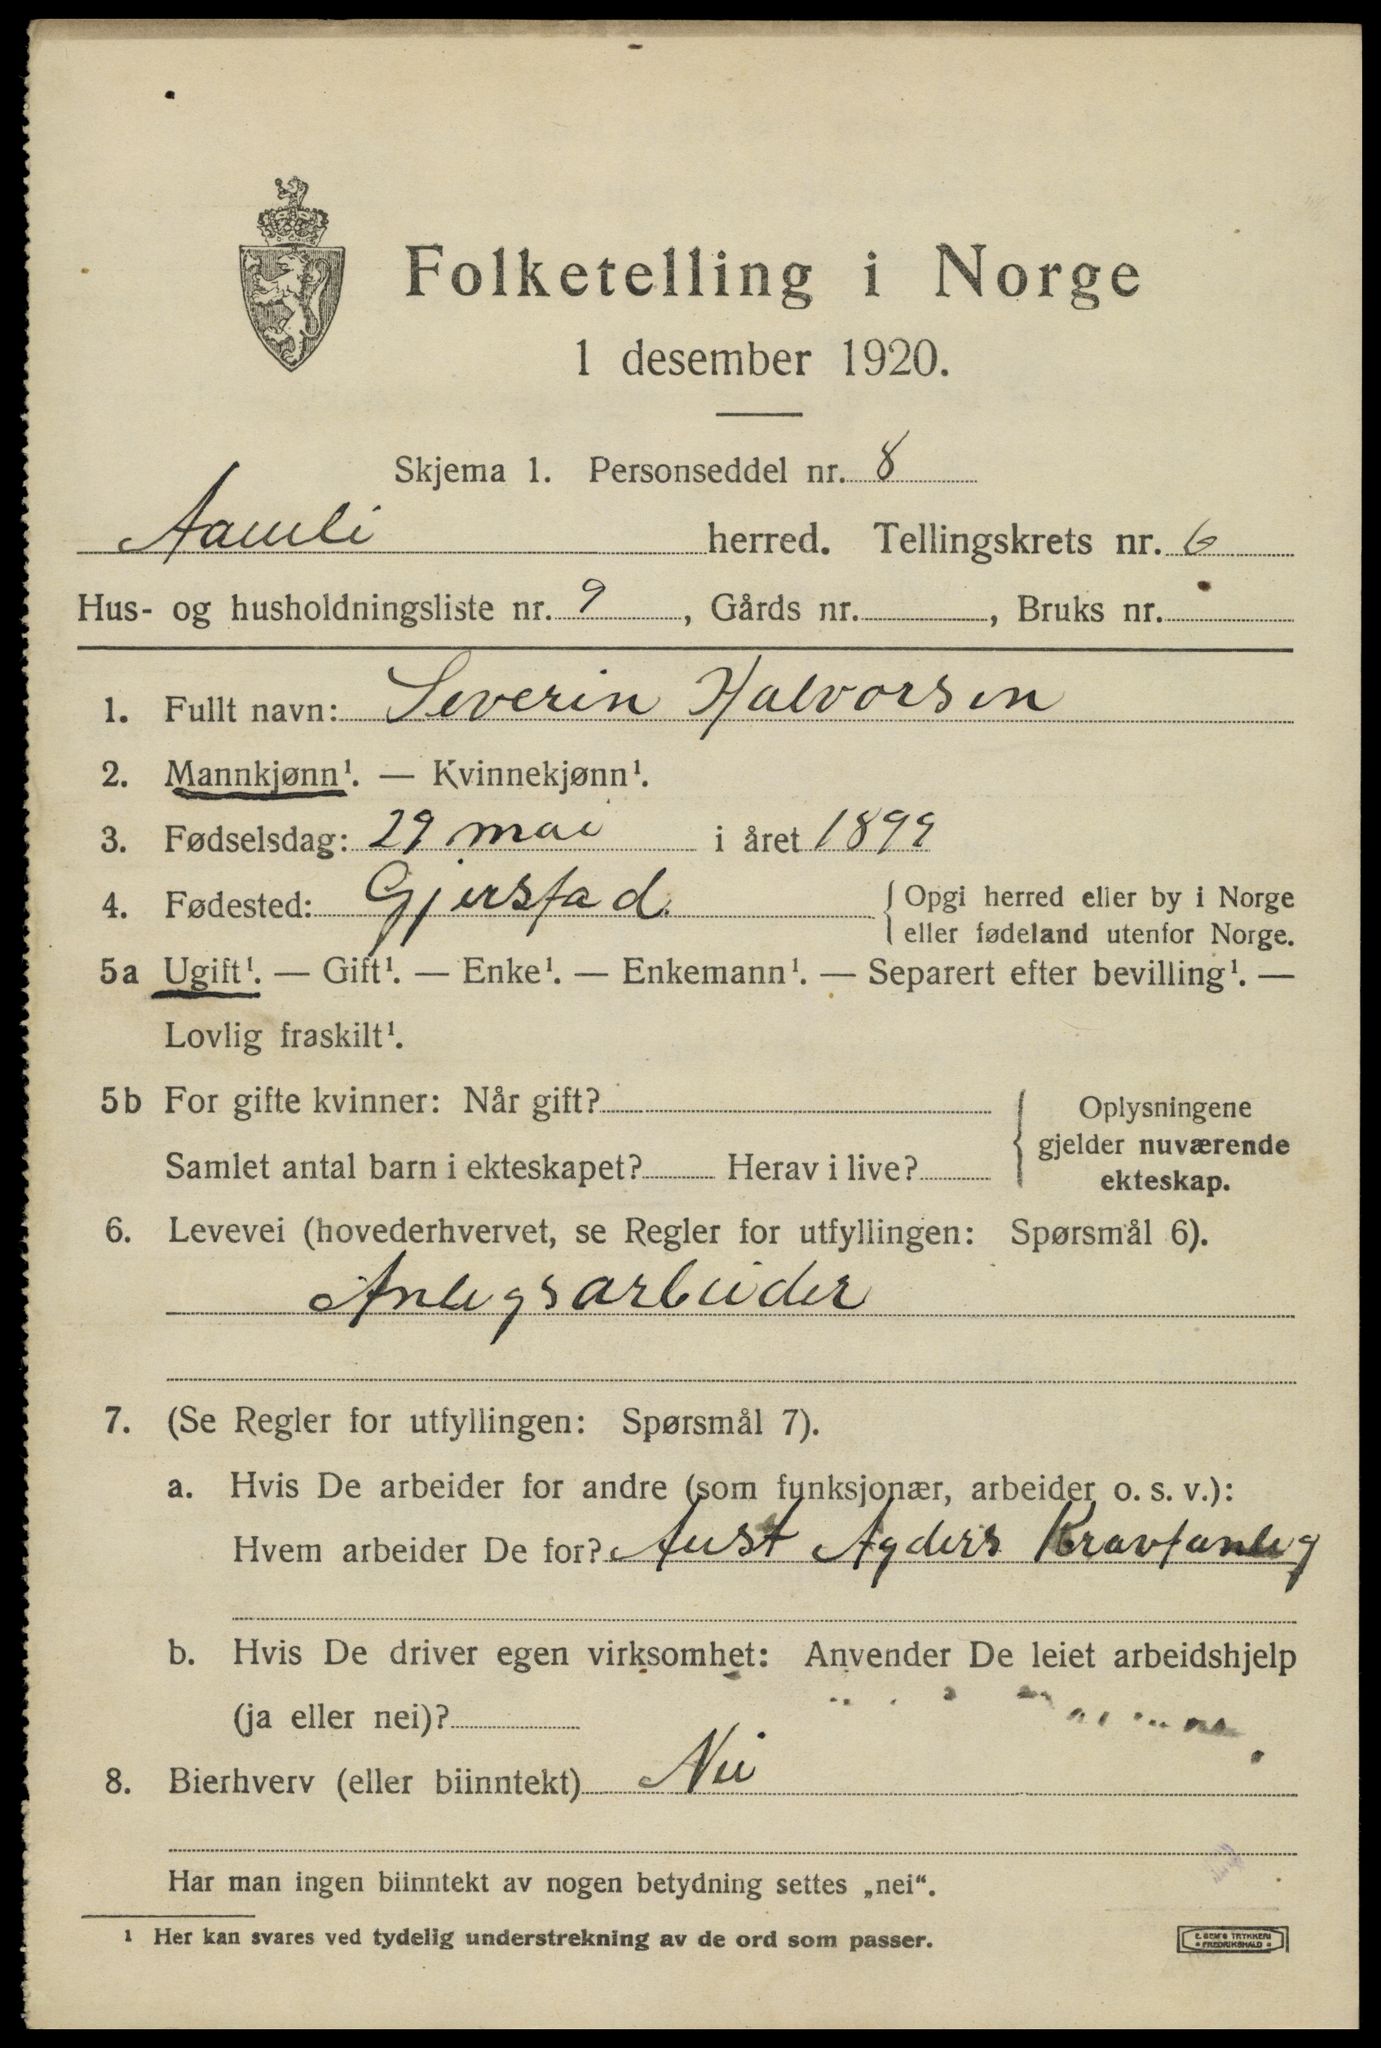 Folketelling i Norge
1 desember 1920.
Skjema 1. Personseddel nr. 8
Aamli herred. Tellingskrets nr. 6
Hus- og husholdningsliste nr. 9, Gårds nr. , Bruks nr.
1. Fullt navn: Severin Halvorsen
2. Mannkjønn¹. — Kvinnekjønn¹.
3. Fødselsdag: 29 mai i året 1899
4. Fødested: Gjerstad. { Opgi herred eller by i Norge
eller fødeland utenfor Norge.
5a Ugift¹. — Gift¹. — Enke¹. — Enkemann¹. — Separert efter bevilling¹. —
Lovlig fraskilt¹.
5b For gifte kvinner: Når gift?
Samlet antal barn i ekteskapet? Herav i live?
{ Oplysningene
gjelder nuværende
ekteskap.
6. Levevei (hovederhvervet, se Regler for utfyllingen: Spørsmål 6).
Anlegsarbeider
7. (Se Regler for utfyllingen: Spørsmål 7).
a. Hvis De arbeider for andre (som funksjonær, arbeider o. s. v.):
Hvem arbeider De for? Aust Agders Kravtanleg
b. Hvis De driver egen virksomhet: Anvender De leiet arbeidshjelp
(ja eller nei)?
8. Bierhverv (eller biinntekt) Nei
Har man ingen biinntekt av nogen betydning settes „nei“.
¹ Her kan svares ved tydelig understrekning av de ord som passer.
E. SEM'S TRYKKERI
FREDRIKSHALD